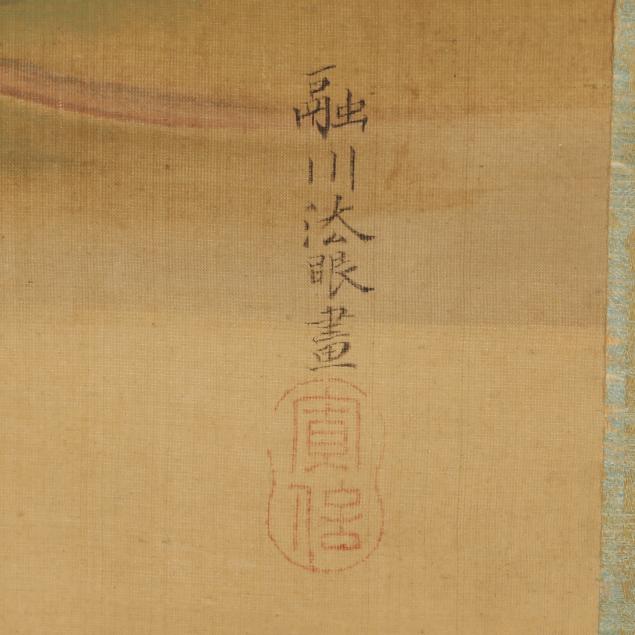 融川法眼畫
寛信